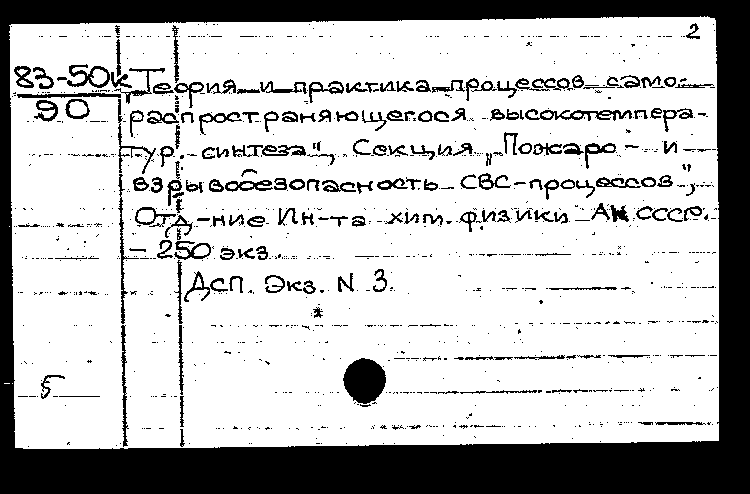 2
83-50к
90
"Теория и практика процессов само-
распространяющегося высокотемпера-
тур. синтеза", Секция "Пожаро- и
взрывобезопасность СВС-процессов",
Отд-ние Ин-та хим. физики АН СССР.
- 250 экз.
ДСП. Экз. N 3.
*
5